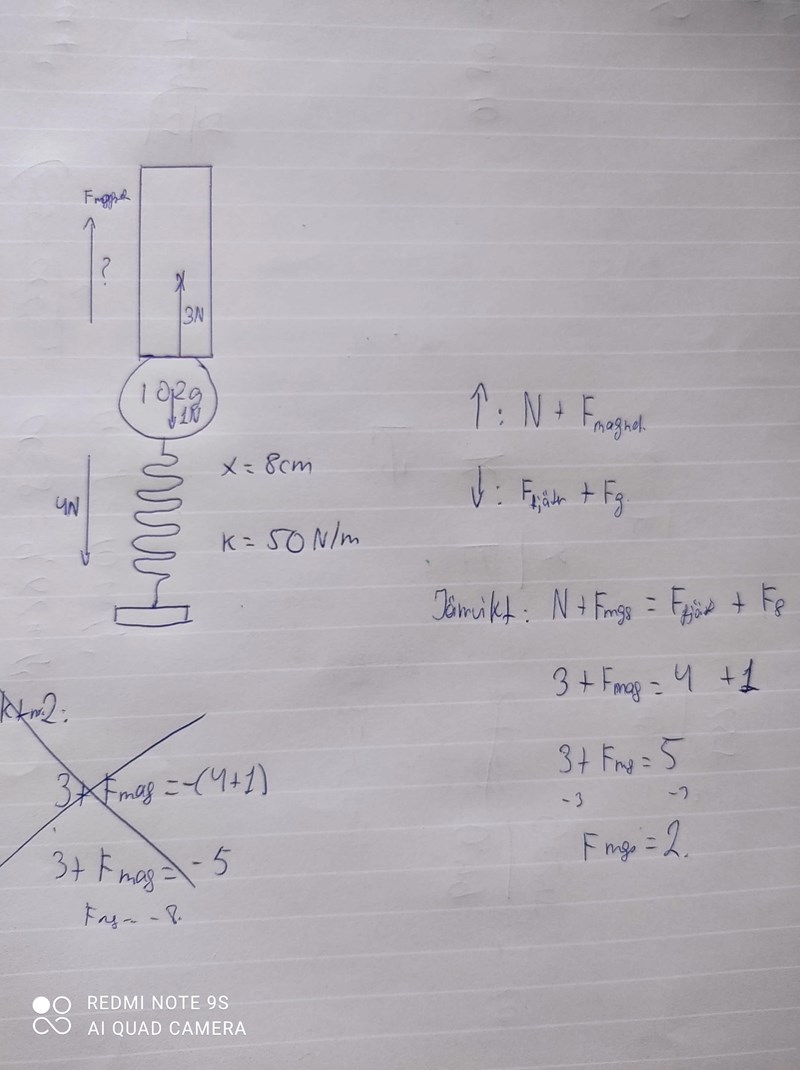 ?
3N
102g
1N
x = 8cm
4N
K = 50 N/m
↑: N + Fmagnet.
↓: Ffjädr + Fg.
Jämvikt: N + Fmag = Ffjäd + Fg
3 + Fmag = 4 + 1
3 + Fmg = 5
-3 -3
Fmg = 2.
3 + Fmag = -(4+1)
3 + Fmag = -5
Fmg = -8.
REDMI NOTE 9S
AI QUAD CAMERA